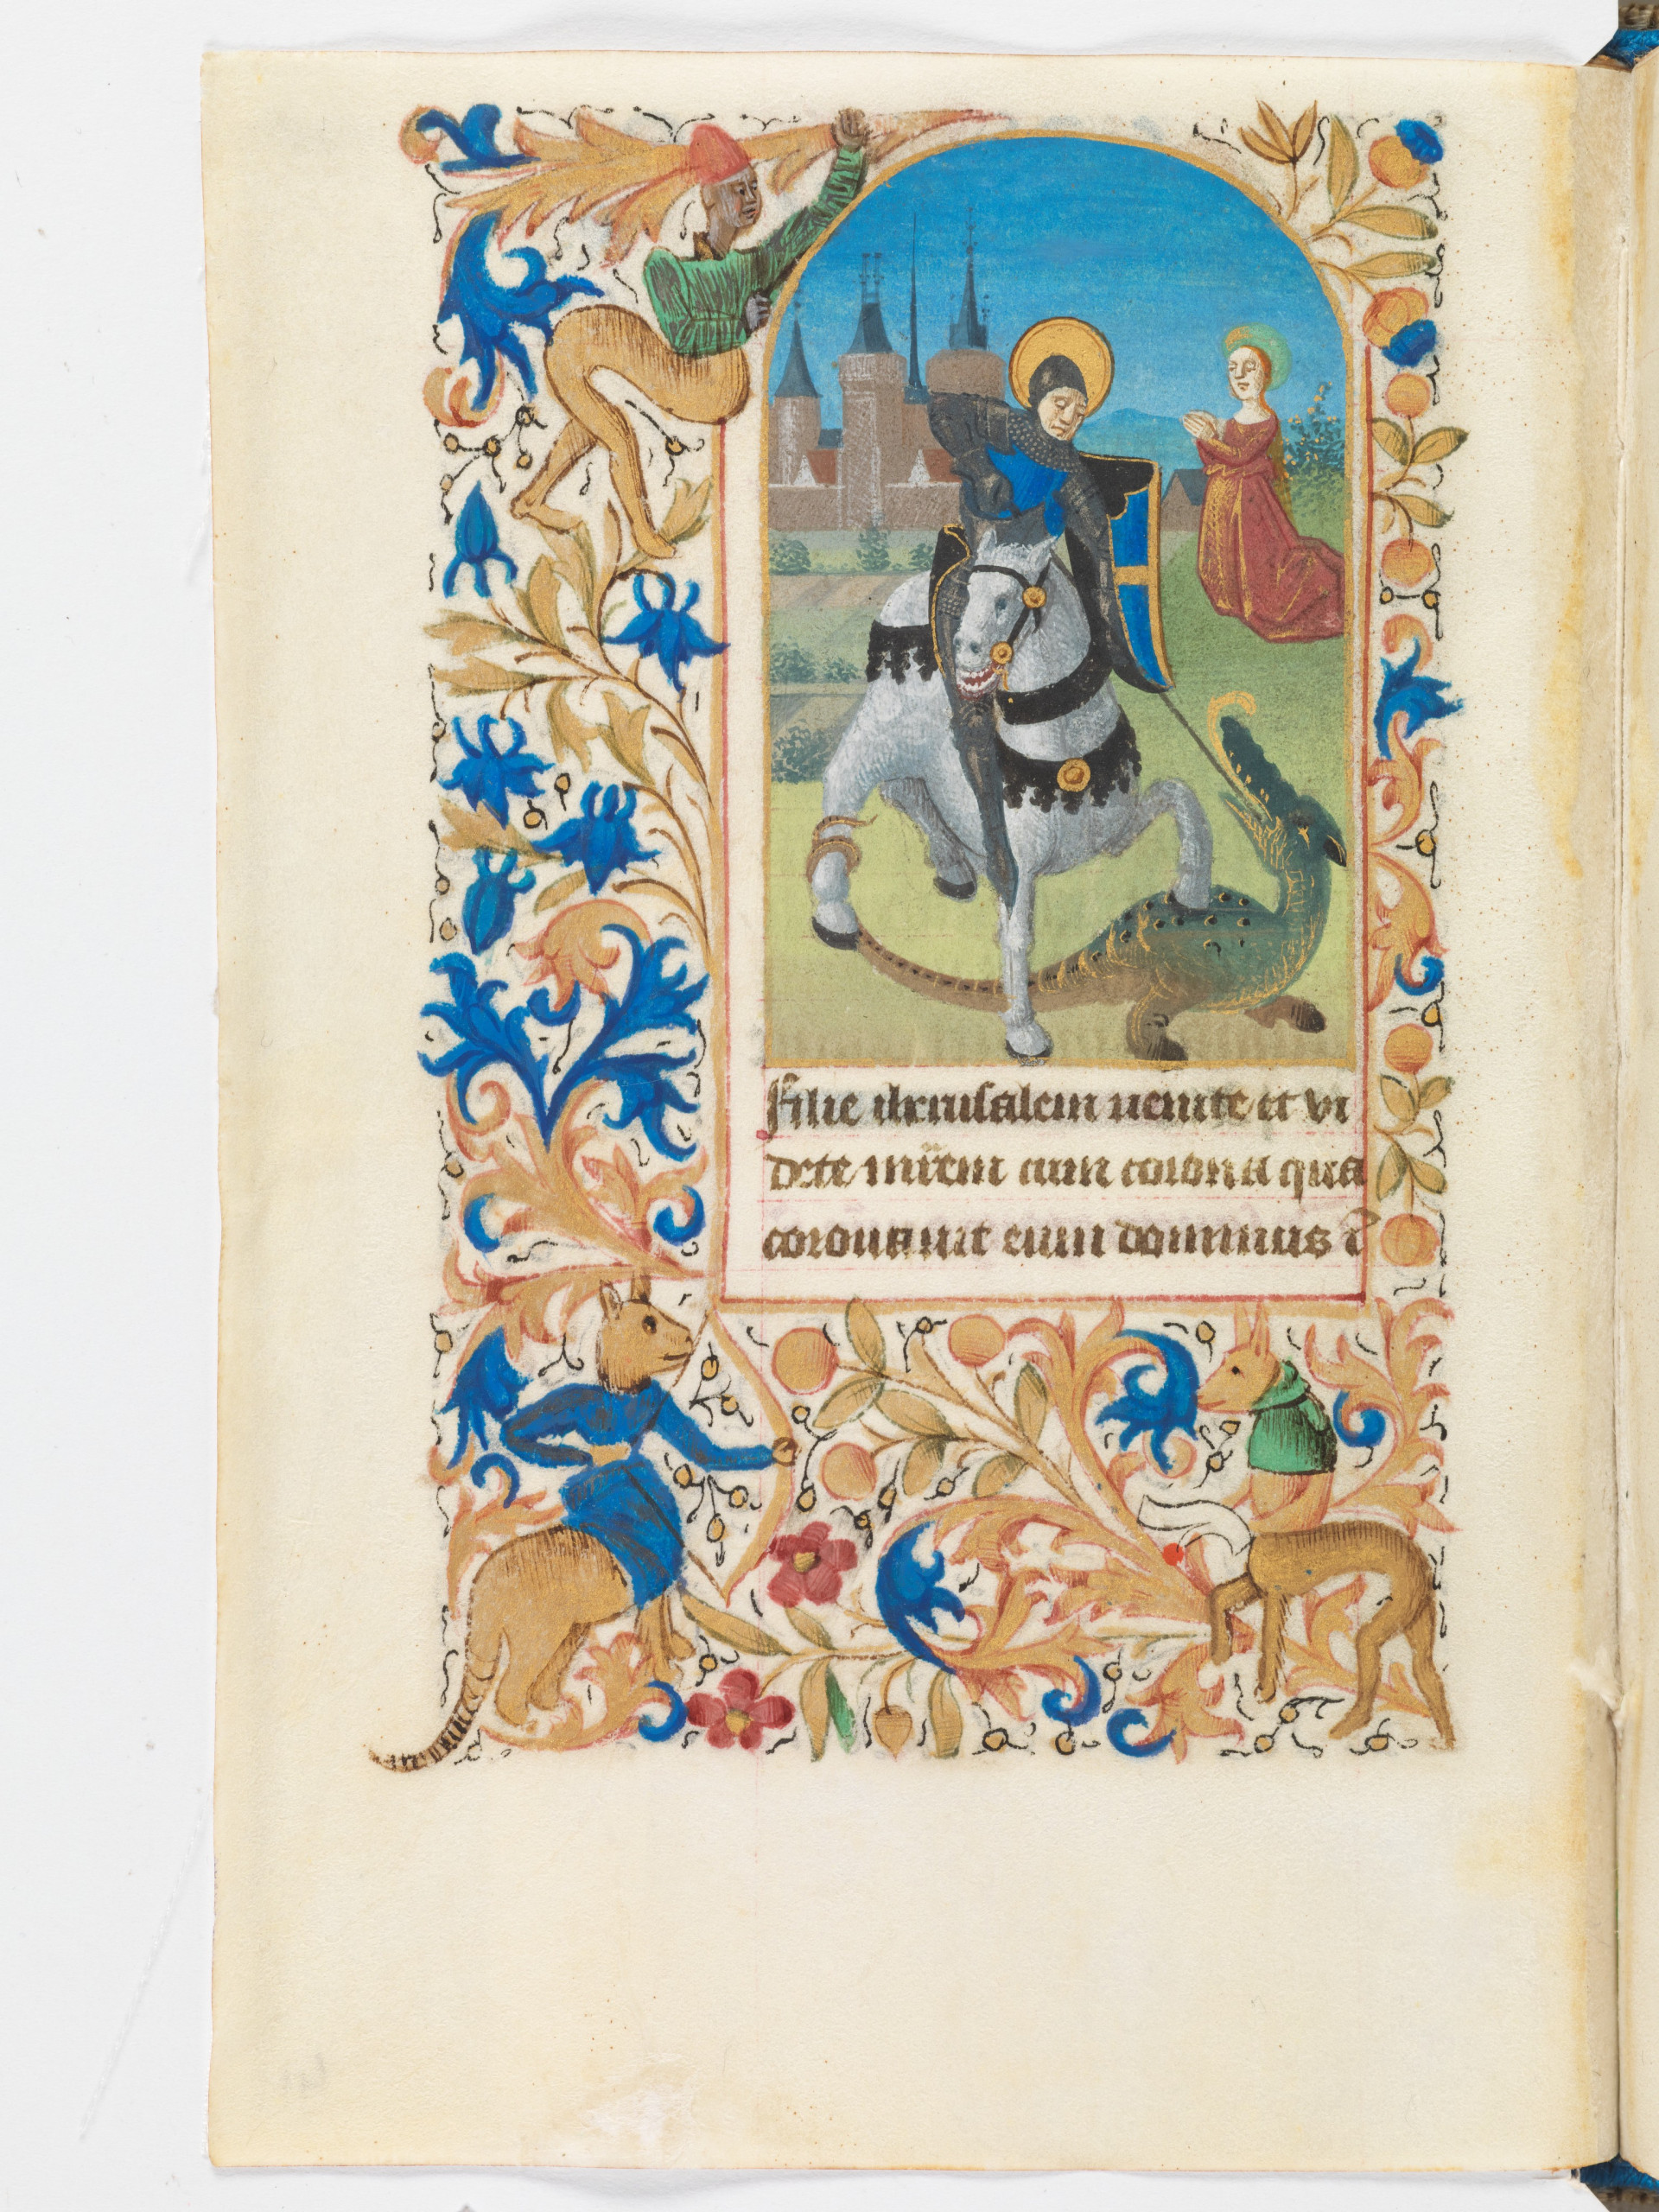 Filie iherusalem uenite et vi
dete mr̄em cum corona qua
coronauit eum dominus ⁊